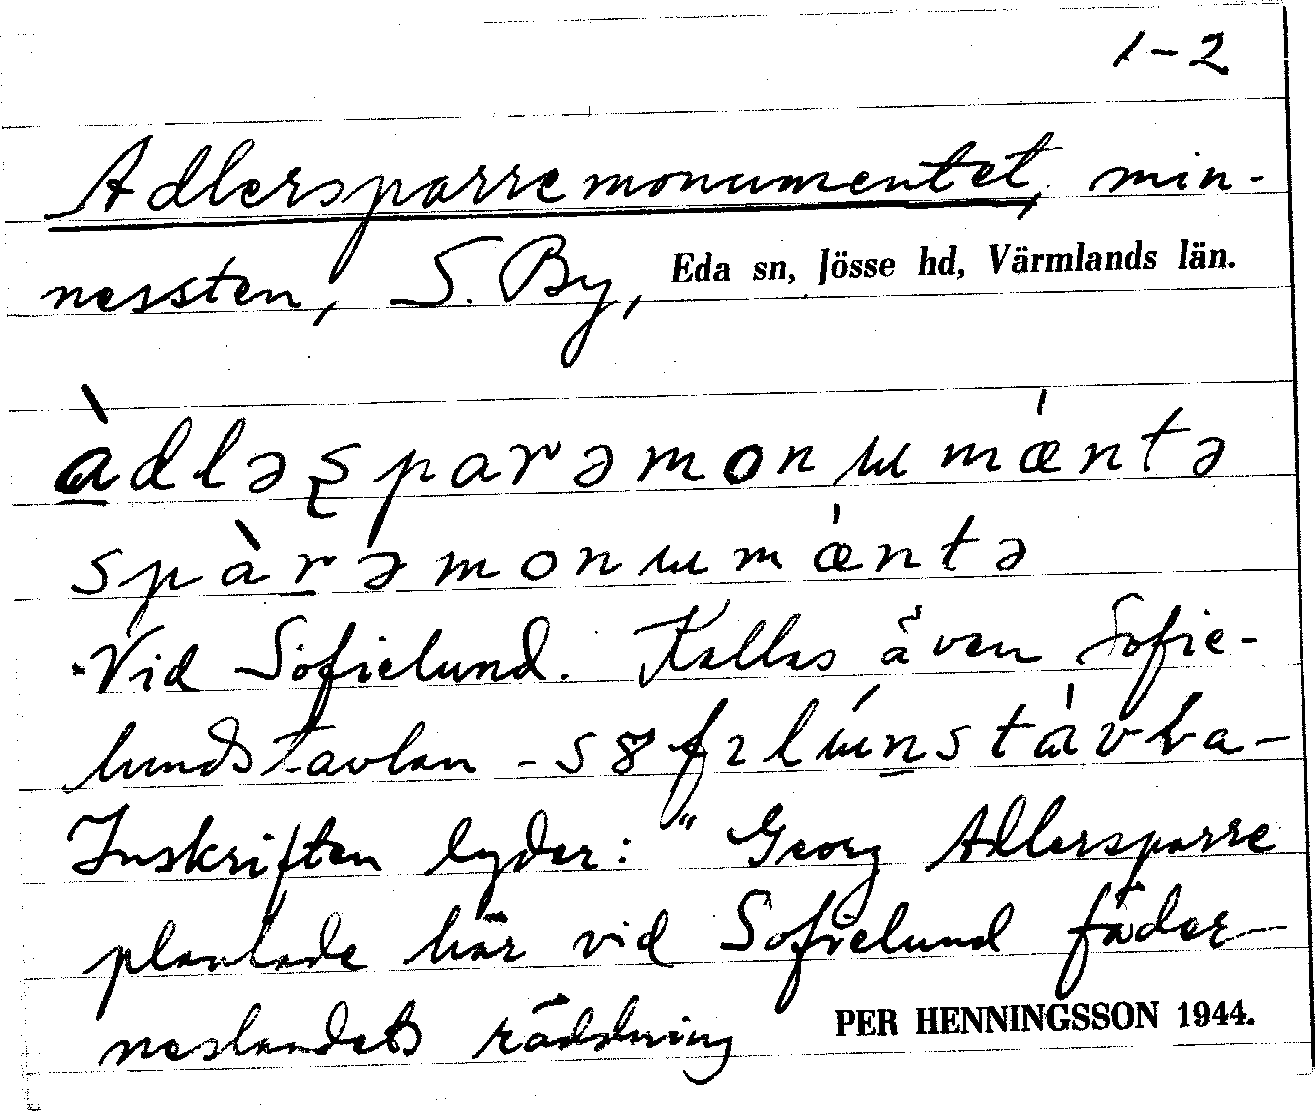 1-2
Adlersparremonumentet, min-
nessten, S. By, Eda sn, Jösse hd, Värmlands län.
àdləʂparəmonɯmǽntə
spàrəmonɯmǽntə
Vid Sofielund. Kallas även Sofie-
lundstavlan -
Inskriften lyder: "Georg Adlersparre
planlade här vid Sofielund fäder-
neslandets räddning PER HENNINGSSON 1944.